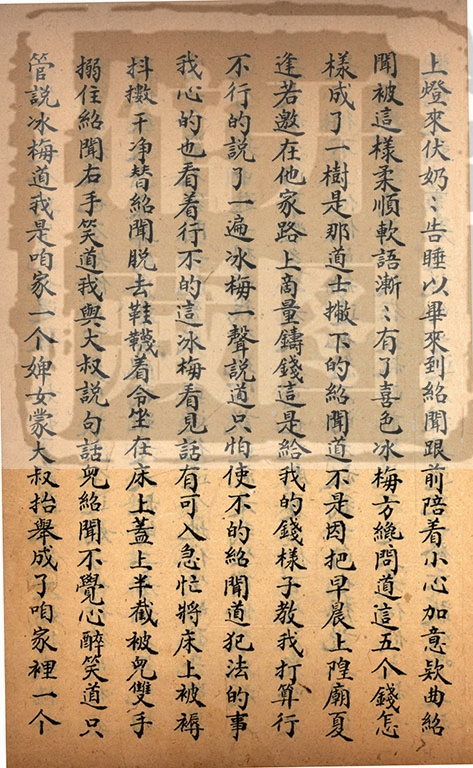 上燈來伏奶〻告睡以畢來到紹聞跟前陪着小心加意欵曲紹
聞被這樣柔順軟語漸〻有了喜色冰梅方纔問道這五个錢怎
樣成了一樹是那道士撇下的紹聞道不是因把早晨上隍廟夏
逢若邀在他家路上商量鑄錢這是給我的錢樣子教我打算行
不行的說了一遍冰梅一聲說道只怕使不的紹聞道犯法的事
我心的也看着行不的這冰梅看見話有可入急忙將床上被褥
抖擻干净替紹聞脱去鞋韈着令坐在床上蓋上半截被兒雙手
搦住紹聞右手笑道我與大叔説句話兒紹聞不覺心醉笑道只
管説冰梅道我是咱家一个婢女蒙大叔抬舉成了咱家裡一个